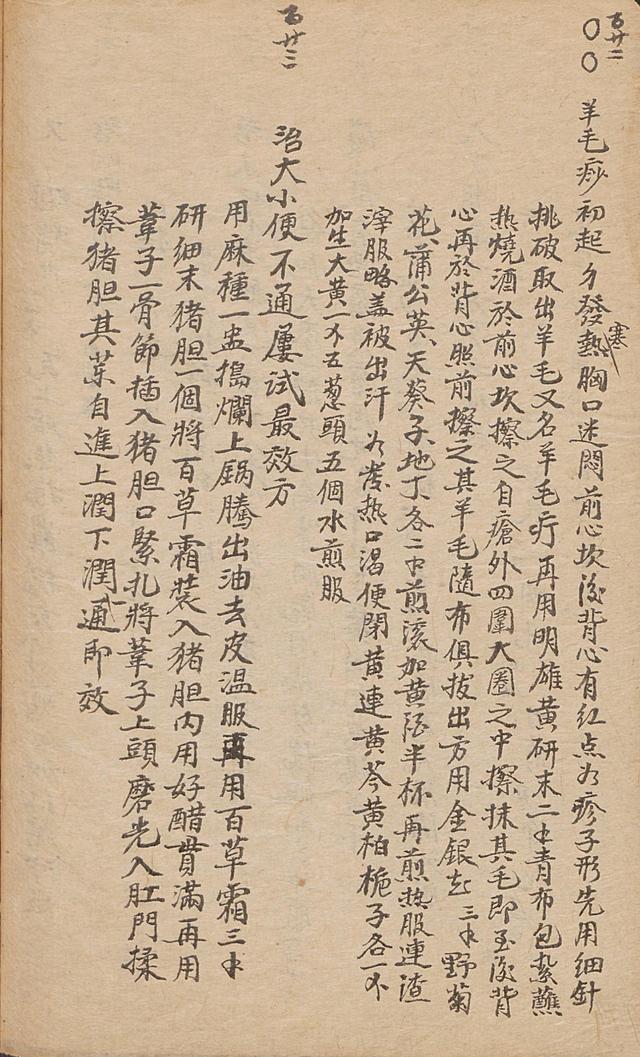 百廿二
〇〇
羊毛痧初起多發熱寒胸口迷悶前心坎後背心有紅点如疹子形先用細針
挑破取出羊毛又名羊毛疔再用明雄黃研末二錢青布包紮蘸
热燒酒於前心坎擦之自瘡外四圍大圈之中擦抹其毛即至後背
心再於背心照前擦之其羊毛隨布俱拔出方用金銀花三錢野菊
花、蒲公英、天葵子、地丁各二錢煎滾加黃酒半杯再煎热服連渣
滓服略盖被出汗如發热口渴便閉黃連黃芩黃柏梔子各一錢
加生大黃一錢五葱頭五個水煎服
百廿三
治大小便不通屢試最效方
用麻種一盅搗爛上鍋騰出油去皮溫服再用百草霜三錢
研細末猪胆一個將百草霜裝入猪胆內用好醋貫滿再用
葦子一骨節插入猪胆口緊扎將葦子上頭磨光入肛門揉
擦猪胆其葯自進上潤下潤通即效